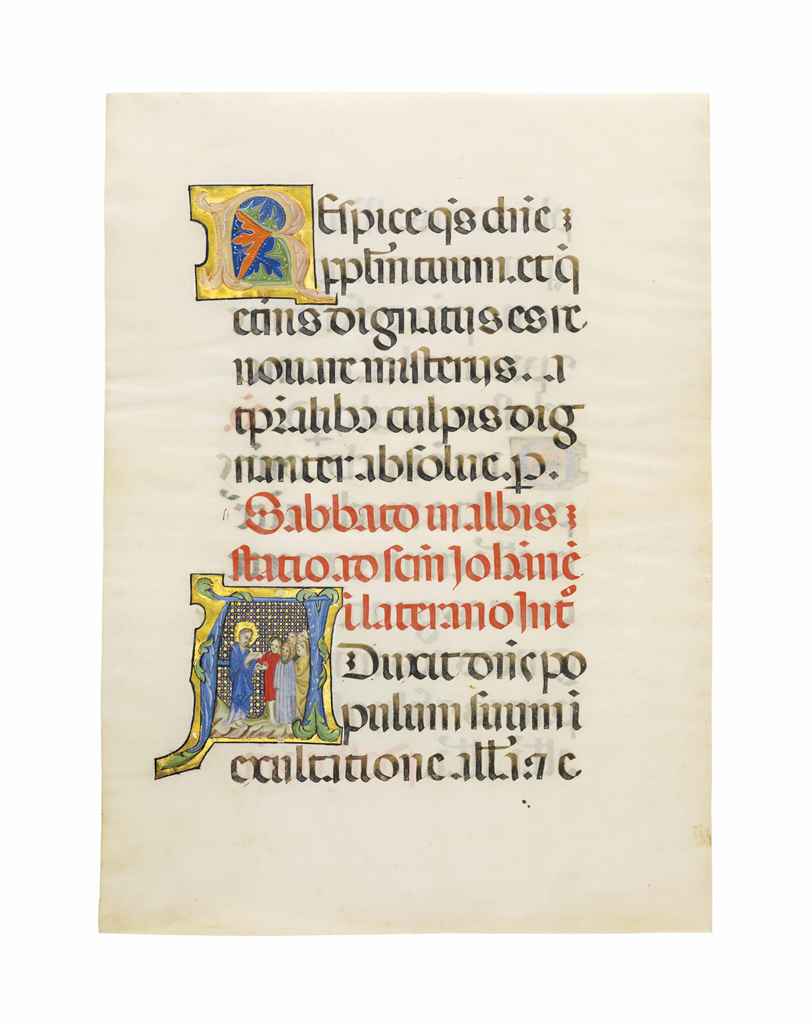 REspice q̄s dn̄e ;
pplm̄ tuum. et q̄
et̄nis dignatus es re
nouare misterijs. a
tp̄ralibꝫ culpis dig
nanter absolue. ꝑ.
Sabbato in albis ;
statio ad scm̄ Johānē
ī laterano Int̄
ADuxit dn̄s po
pulum suum i
exultatione all̄a : ⁊ e